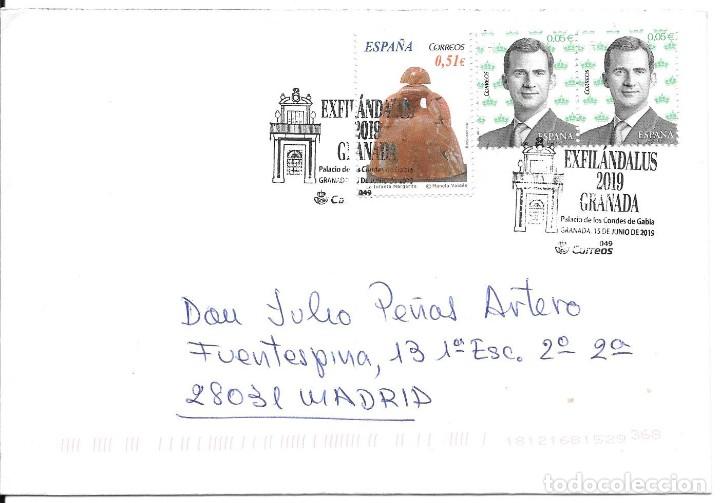 ESPAÑA CORREOS
0,51€
La Infanta Margarita © Manolo Valdés
0,05€
CORREOS
ESPAÑA
0,05€
CORREOS
ESPAÑA
EXFILÁNDALUS
2019
GRANADA
Palacio de los Condes de Gabia
049
EXFILÁNDALUS
2019
GRANADA
Palacio de los Condes de Gabia
GRANADA, 15 DE JUNIO DE 2019
049
Correos
Don Julio Peñas Artero
Fuentespina, 13 1ª Esc. 2º 2ª
28031 MADRID
18121681529 368
todocoleccion